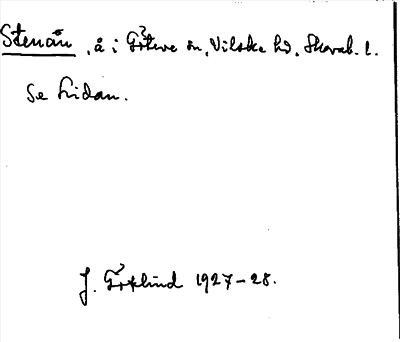 Stenån, å i Götene sn, Vilske hd, Skarab. l.
Se Lidan.
J. Götlind 1927-28.